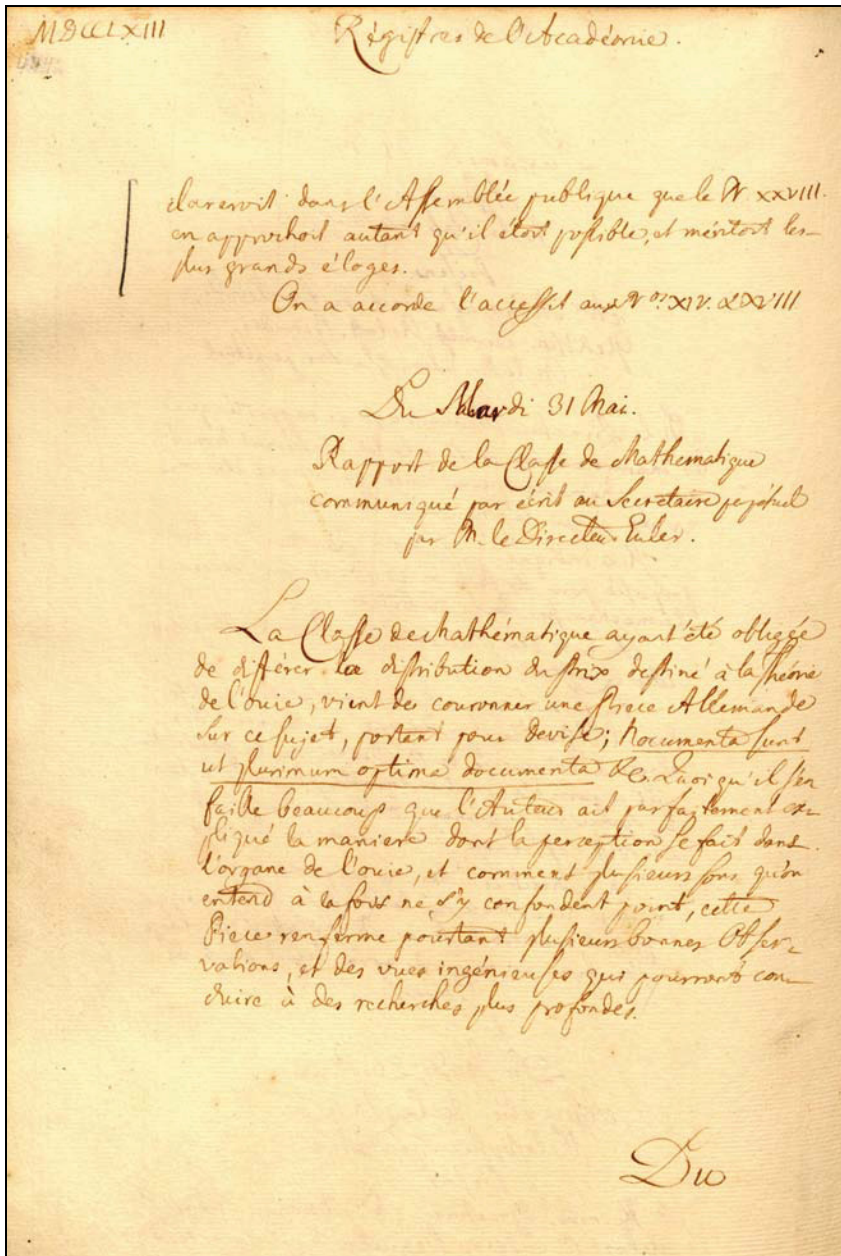 MDCCLXIII
Régistres de l'Académie.
clareroit dans l'Assemblée publique que le N° XXVIII.
en approchoit autant qu'il étoit possible, et méritoit les
plus grands éloges.
On a accordé l'accessit aux Nos XIV. & XVIII
Du Mardi 31 Mai.
Rapport de la Classe de Mathematique
communiqué par écrit au Secretaire perpétuel
par M. le Directeur Euler.
La Classe de Mathématique ayant été obligée
de différer la distribution du Prix destiné à la Théorie
de l'ouie, vient de couronner une Piece Allemande
sur ce sujet, portant pour Devise; Nocumenta sunt
ut plurimum optima documenta &c. Quoiqu'il s'en
faille beaucoup que l'Auteur ait parfaitement ex-
pliqué la maniere dont la perception se fait dans
l'organe de l'ouie, et comment plusieurs sons qu'on
entend à la fois ne s'y confondent point, cette
Piece renferme pourtant plusieurs bonnes Obser-
vations, et des vues ingénieuses qui pourront con-
duire à des recherches plus profondes.
Du